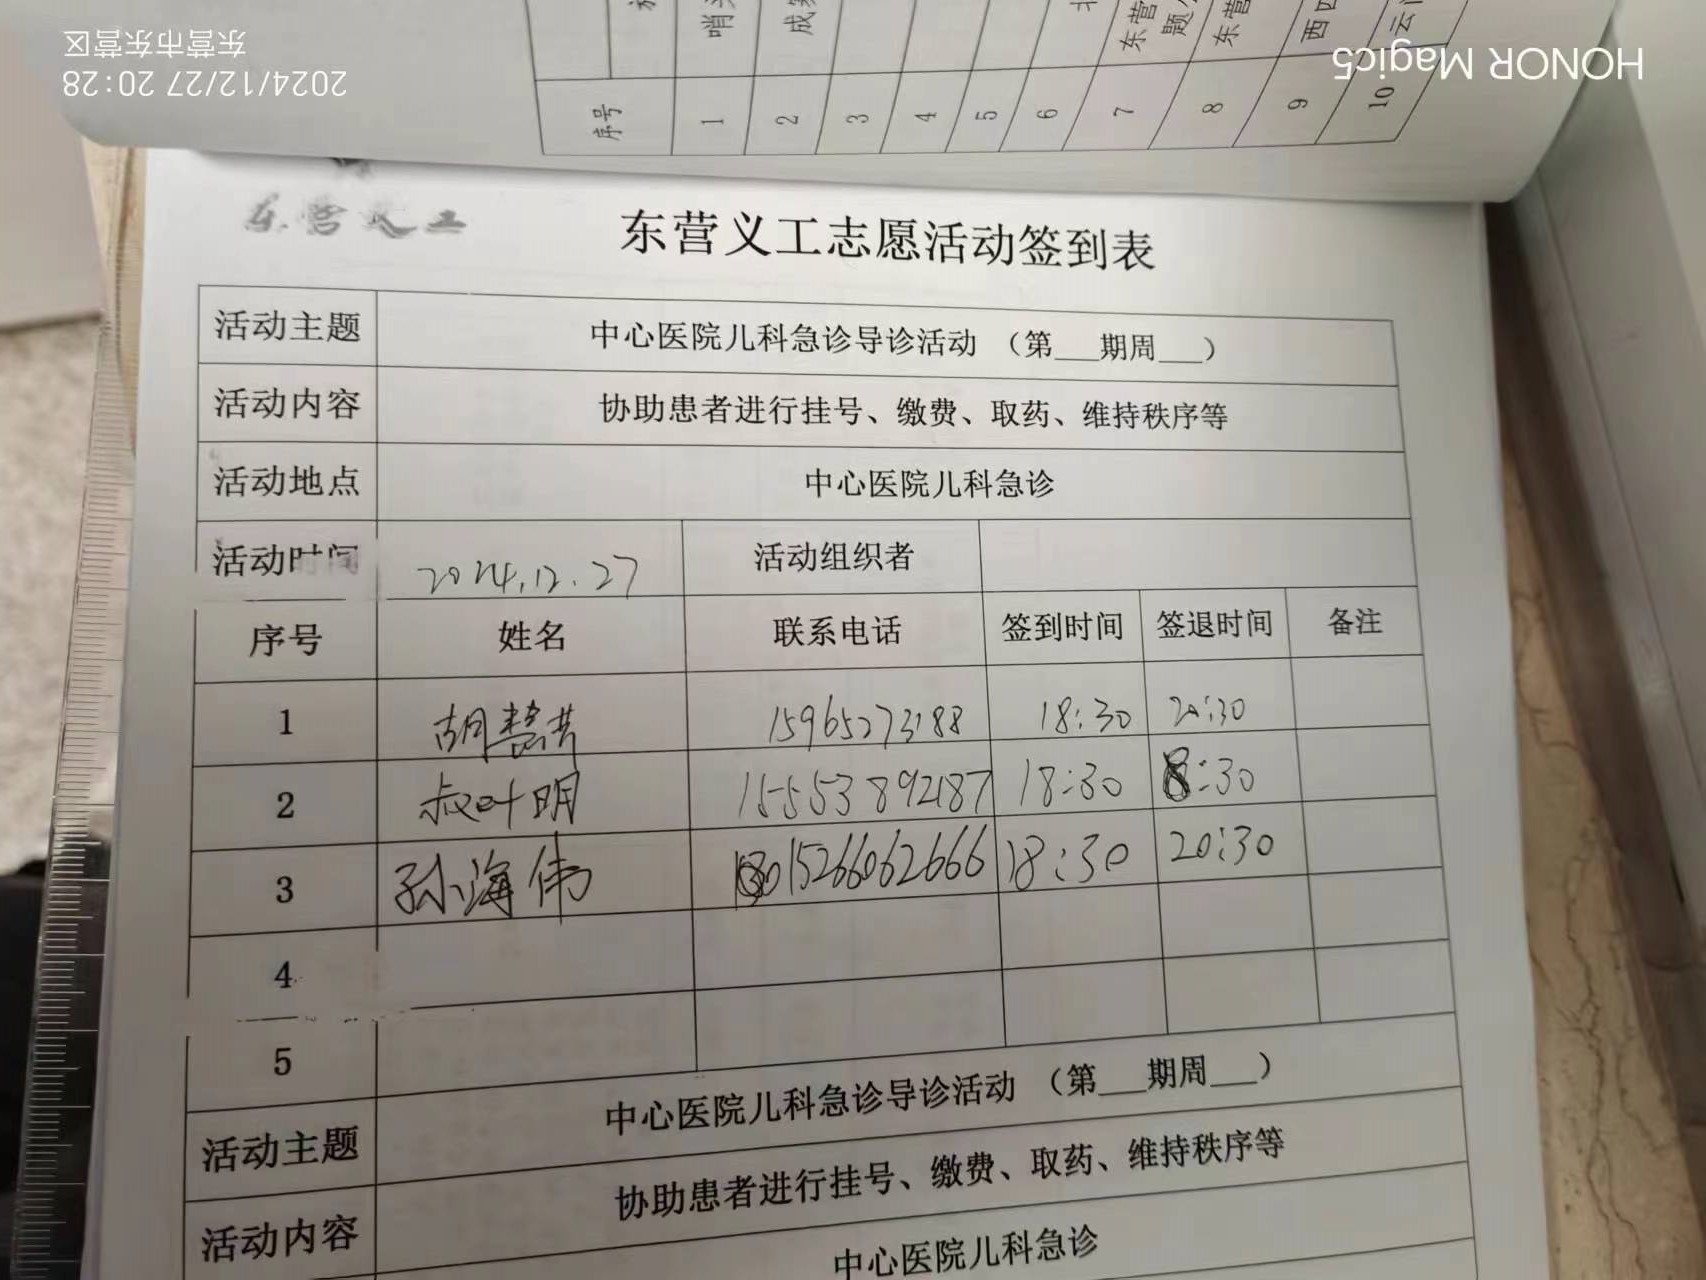 东营市东营区
2024/12/27 20:28
HONOR Magic5
序号 1 2 3 4 5 6 7 8 9 10
东营义工
东营义工志愿活动签到表
活动主题 中心医院儿科急诊导诊活动 （第___期周___）
活动内容 协助患者进行挂号、缴费、取药、维持秩序等
活动地点 中心医院儿科急诊
活动时间 2024.12.27 活动组织者
序号 姓名 联系电话 签到时间 签退时间 备注
1 胡慧 15965273188 18:30 20:30
2 叶明 15553892187 18:30 8:30
3 孙海伟 15266062666 18:30 20:30
4
5
活动主题 中心医院儿科急诊导诊活动 （第___期周___）
活动内容 协助患者进行挂号、缴费、取药、维持秩序等
中心医院儿科急诊